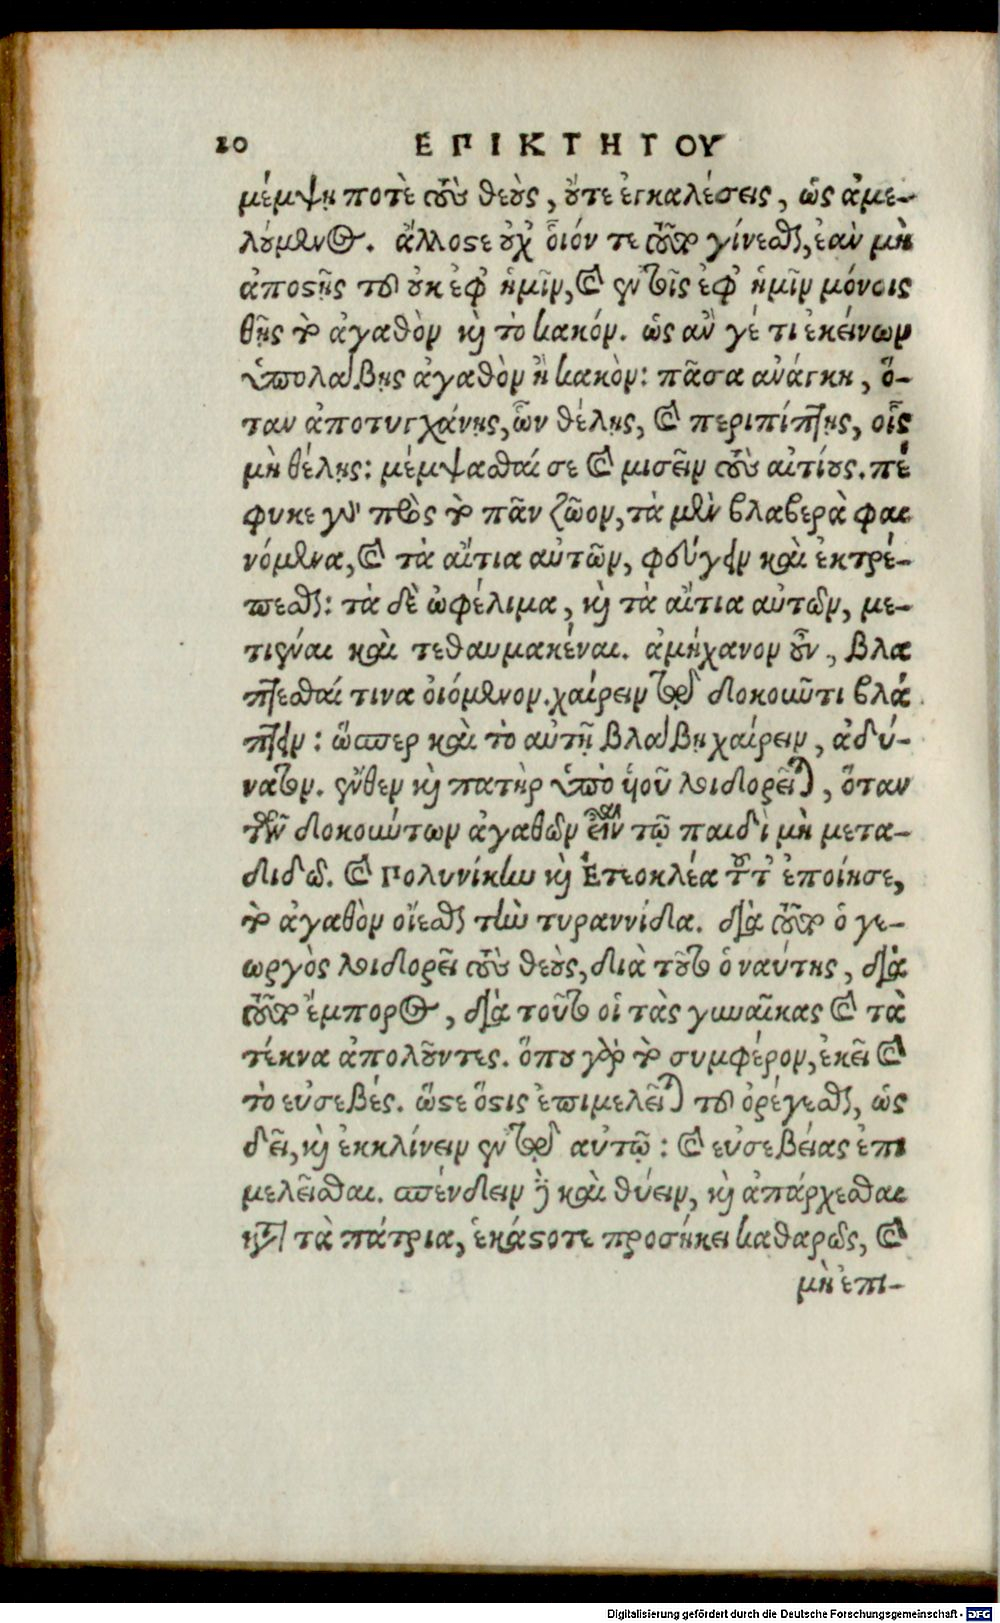 20 ΕΠΙΚΤΗΤΟΥ
μέμψῃ ποτὲ τοὺς θεοὺς, οὔτε ἐγκαλέσεις, ὡς ἀμε-
λούμενος. ἄλλοςε οὐχ οἷόν τε τοῦτο γίνεσθαι, ἐὰν μὴ
ἀποςῇς τοῦ οὐκ ἐφ' ἡμῖν, καὶ ἐν τοῖς ἐφ' ἡμῖν μόνοις
θῇς τὸ ἀγαθὸν καὶ τὸ κακόν. ὡς ἄν γέ τι ἐκείνων
ὑπολάβῃς ἀγαθὸν ἢ κακὸν: πᾶσα ἀνάγκη, ὅ-
ταν ἀποτυγχάνῃς, ὧν θέλῃς, καὶ περιπίπτῃς, οἷς
μὴ θέλῃς: μέμψασθαί σε καὶ μισεῖν τοὺς αἰτίους. πέ
φυκε γὰρ πρὸς τὸ πᾶν ζῶον, τὰ μὲν βλαβερὰ φαι
νόμενα, καὶ τὰ αἴτια αὐτῶν, φεύγειν καὶ ἐκτρέ-
πεσθαι: τὰ δὲ ὠφέλιμα, καὶ τὰ αἴτια αὐτῶν, με-
τιέναι καὶ τεθαυμακέναι. ἀμήχανον οὖν, βλα
πτεσθαί τινα οἰόμενον. χαίρειν τῷ δοκοῦντι βλά
πτειν: ὥσπερ καὶ τὸ αὐτῇ βλάβῃ χαίρειν, ἀδύ-
νατον. ἔνθεν καὶ πατὴρ ὑπὸ ἡοῦ λοιδορεῖται, ὅταν
τῶν δοκούντων ἀγαθῶν εἶναι τῷ παιδὶ μὴ μετα-
διδῷ. καὶ Πολυνίκην καὶ Ἐτεοκλέα τοῦτ' ἐποίησε,
τὸ ἀγαθὸν οἴεσθαι τὴν τυραννίδα. διὰ τοῦτο ὁ γε-
ωργὸς λοιδορεῖ τοὺς θεοὺς, διὰ τοῦτο ὁ ναύτης, διὰ
τοῦτο ἔμπορος, διὰ τοῦτο οἱ τὰς γυναῖκας καὶ τὰ
τέκνα ἀπολοῦντες. ὅπου γὰρ τὸ συμφέρον, ἐκεῖ καὶ
τὸ εὐσεβές. ὥςε ὅςις ἐπιμελεῖται τοῦ ὀρέγεσθαι, ὡς
δεῖ, καὶ ἐκκλίνειν ἐν τῷ αὐτῷ: καὶ εὐσεβείας ἐπι
μελεῖσθαι. σπένδειν δὲ καὶ θύειν, καὶ ἀπάρχεσθαι
κατὰ τὰ πάτρια, ἑκάςοτε προσήκει καθαρῶς, καὶ
μὴ ἐπι-
Digitalisierung gefördert durch die Deutsche Forschungsgemeinschaft - DFG